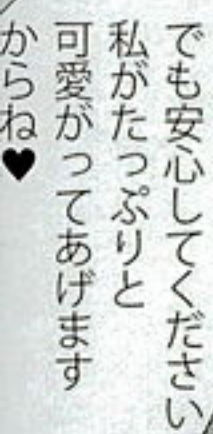 でも安心してください
私がたっぷりと
可愛がってあげます
からね♥